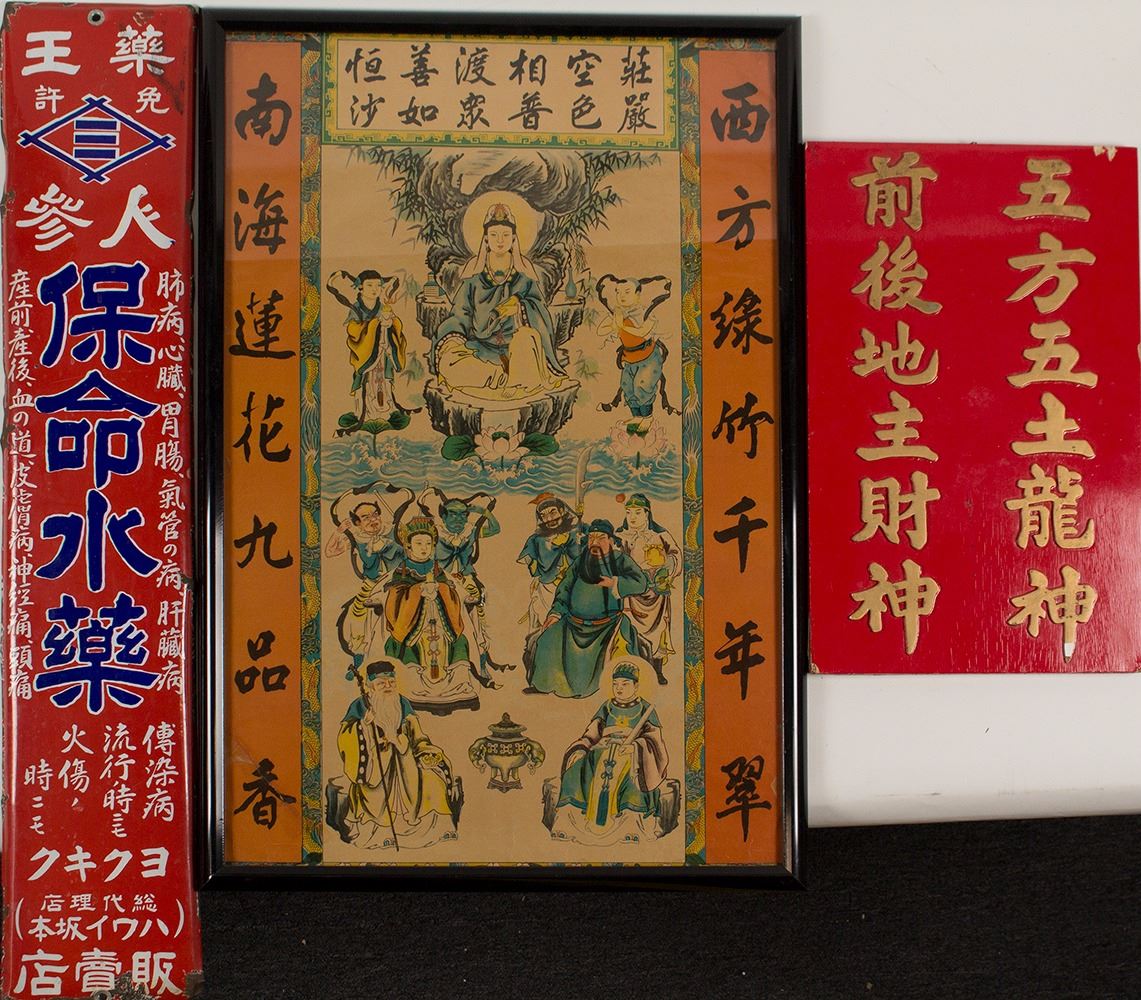 藥王
免許
三
人參
保命水藥
肺病、心臟、胃腸、氣管の病、肝臟病
産前産後、血の道、皮膚病神経痛、頭痛
傳染病
流行時ニモ
火傷ノ
時ニモ
ヨクキク
総代理店
(ハワイ坂本)
販賣店
莊嚴
空色
相普
渡眾
善如
恒沙
西方綠竹千年翠
南海蓮花九品香
五方五土龍神
前後地主財神